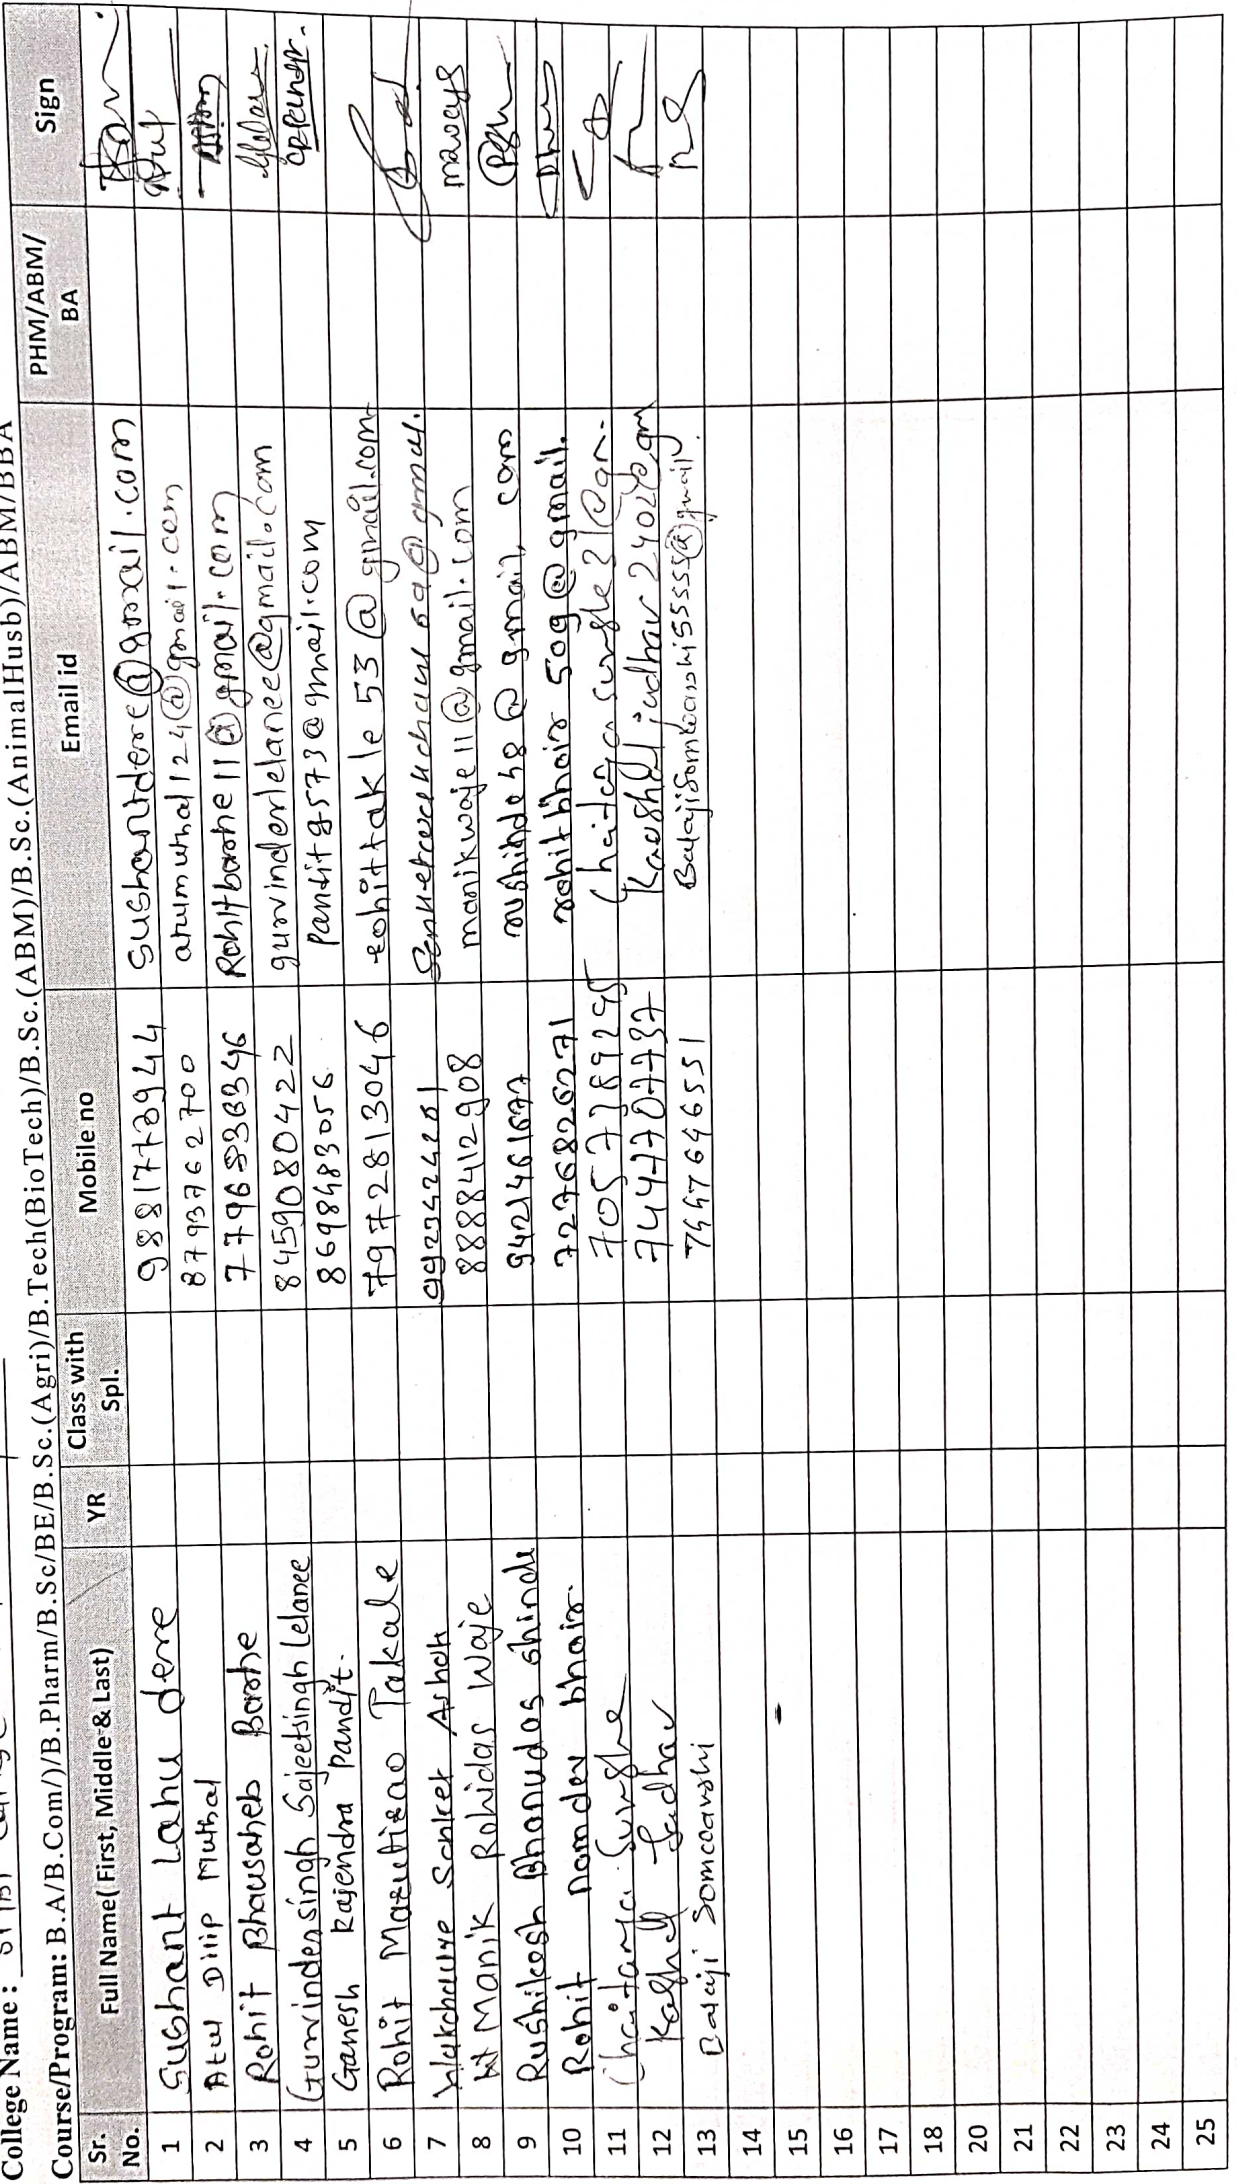 College Name :
Course/Program: B.A/B.Com/)/B.Pharm/B.Sc/BE/B.Sc.(Agri)/B.Tech(BioTech)/B.Sc.(ABM)/B.Sc.(AnimalHusb)/ABM/BBA
Sr. No. Full Name( First, Middle & Last) YR Class with Spl. Mobile no Email id PHM/ABM/ BA Sign
1 Sushant Lahu dere 9881773944 sushantdere@gmail.com
2 Atul Dilip Muthal 8793762700 atumuthal124@gmail.com
3 Rohit Bhausaheb Borhe Rohitborhe11@gmail.com
4 Gurvindersingh Sajeetsingh lelanee 8459080422 gurvinderlelanee@gmail.com
5 Ganesh Rajendra Pandit. 8698483056 Panditg573@gmail.com
6 Rohit Marutirao Takale 7972813046 rohittakle53@gmail.com
7 Wakchaure Sanket Ashok
8 Manik Rohidas Waje 8888412908 manikwaje11@gmail.com
9 Rushikesh Bhanudas shinde 9421461677 rushinde48@gmail.com
10 Rohit namdev bhair. 7276826271 rohitbhair509@gmail.
11 Chaitanya Surghe 7057789245
12 Kaushal Jadhav Kaushaljadhav2402@gm
13 Balaji Somwanshi 7447646551 Balajisomwanshi55555@gmail.
14
15
16
17
18
20
21
22
23
24
25